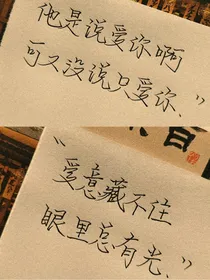 他是说爱你啊
可又没说只爱你.”
“
爱意藏不住
眼里总有光.”